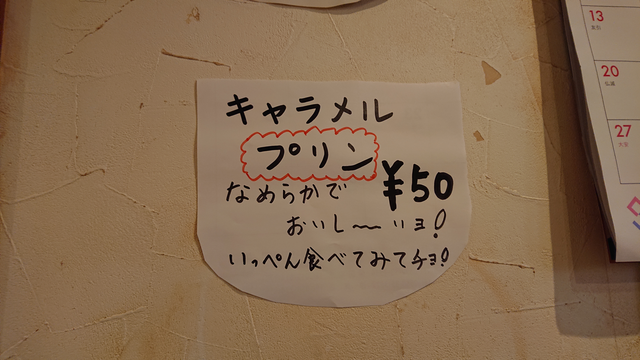 キャラメル
プリン
¥50
なめらかで
おいし〜いヨ!
いっぺん食べてみてチョ!
13
20
27